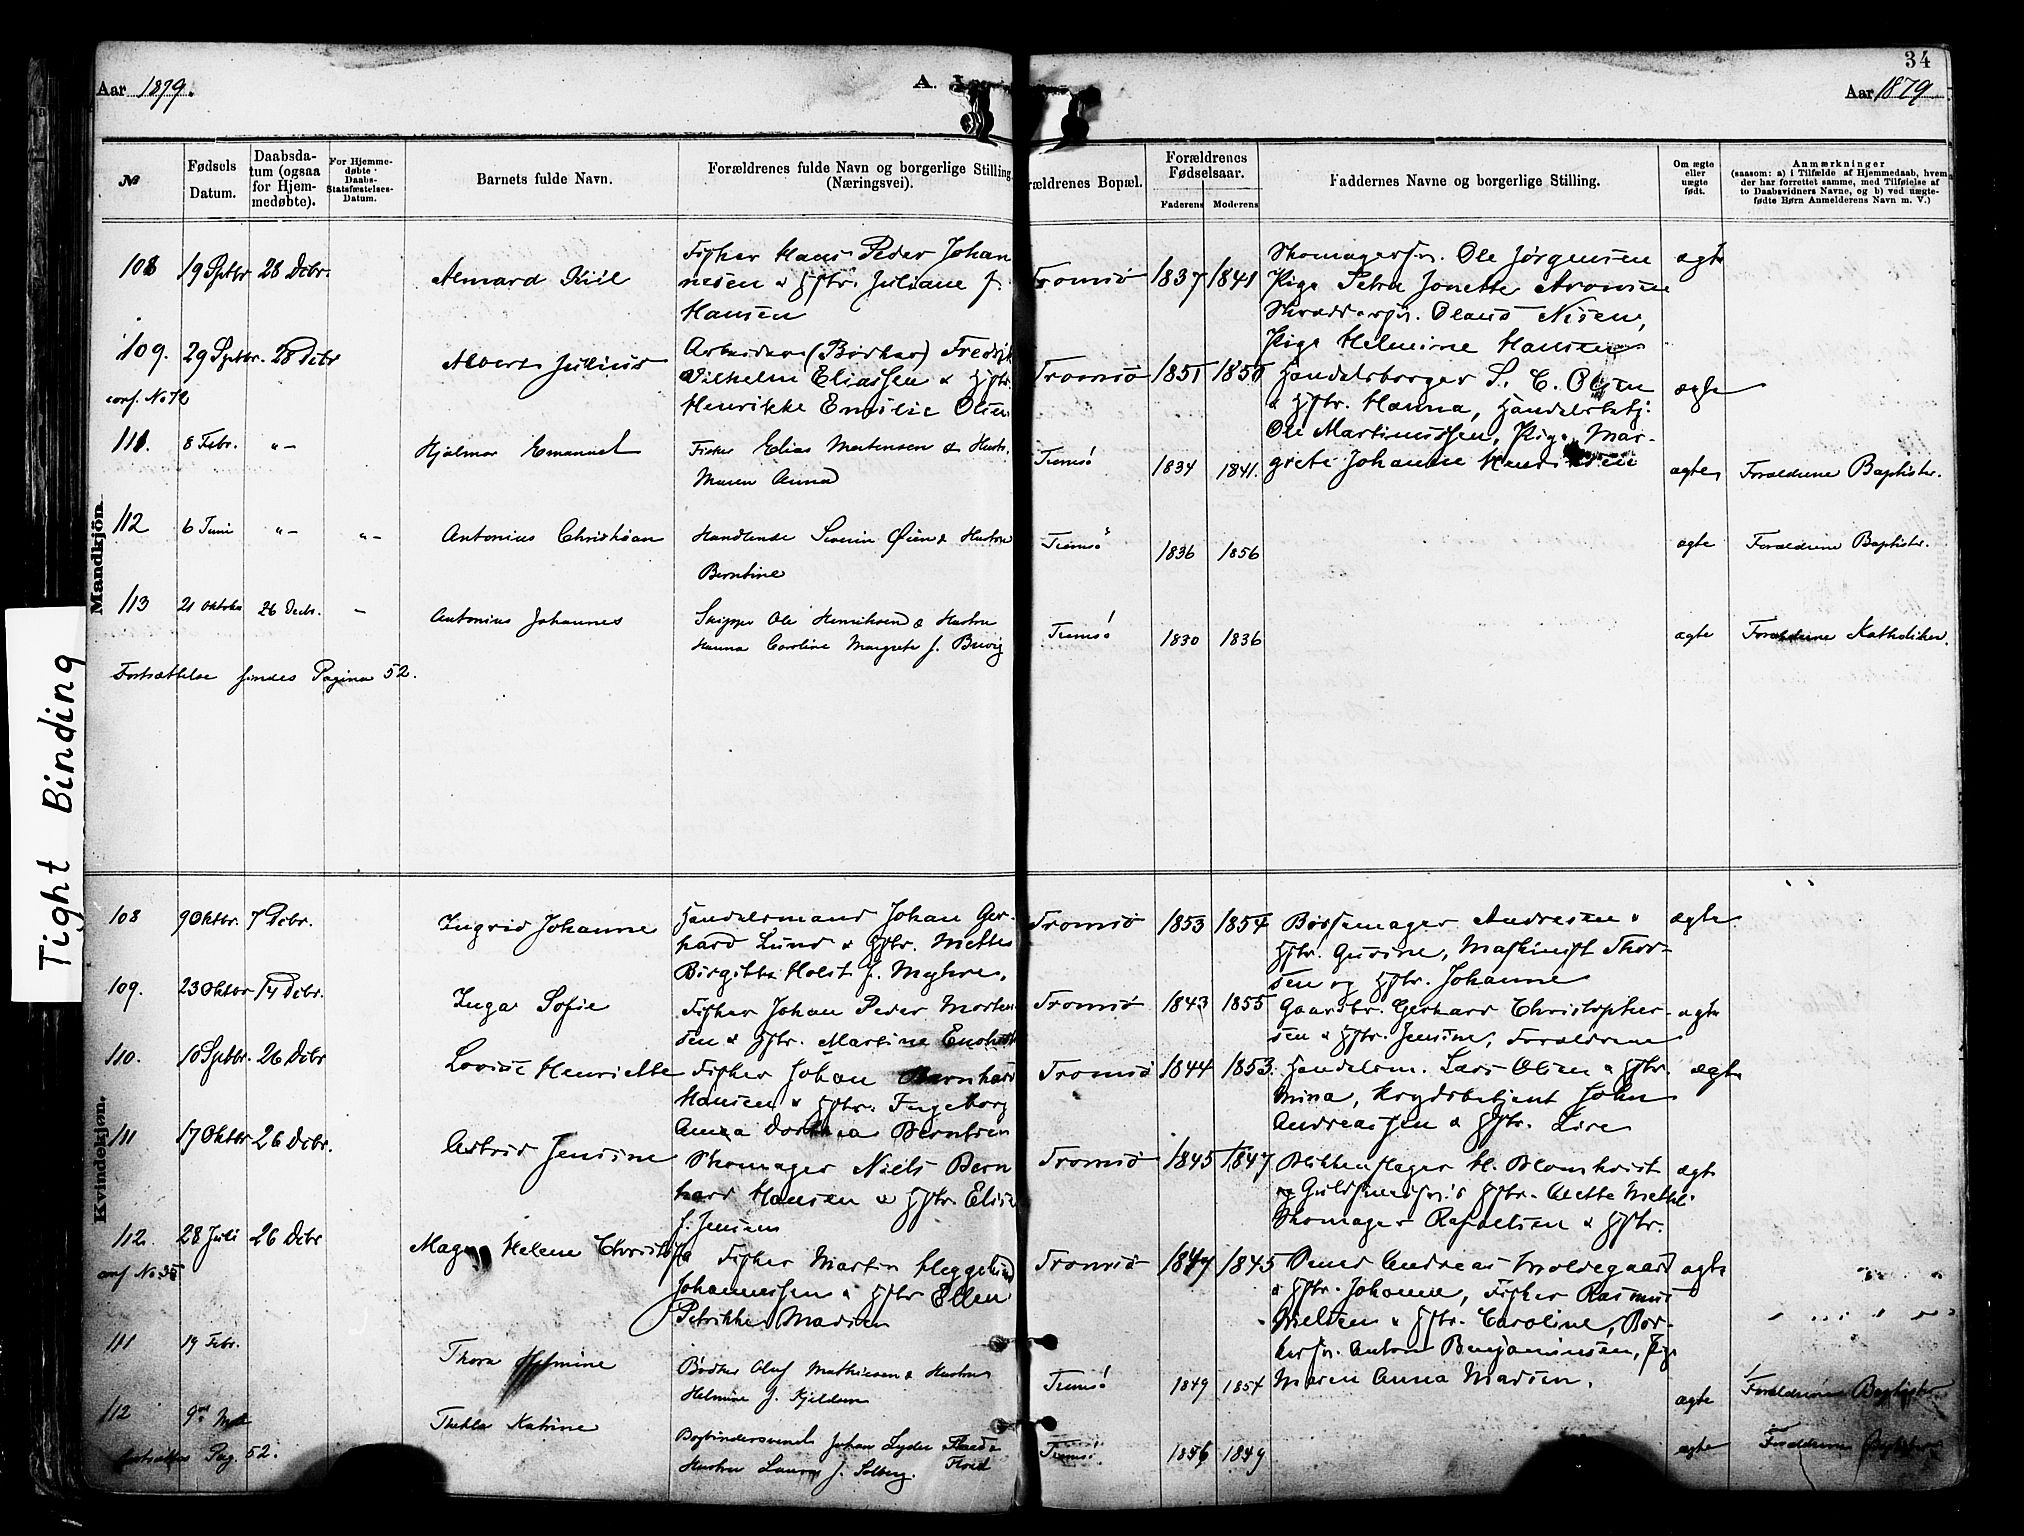 34
Aar 1879.
A.
Aar 1879
№
Fødsels Datum.
Daabsdatum (ogsaa for Hjemmedøbte).
For Hjemmedøbte Daabs-Stadfæstelses-Datum.
Barnets fulde Navn.
Forældrenes fulde Navn og borgerlige Stilling (Næringsvei).
Forældrenes Bopæl.
Forældrenes Fødselsaar.
Faderens
Moderens
Faddernes Navne og borgerlige Stilling.
Om ægte eller uægte født.
Anmærkninger
(saasom: a) i Tilfælde af Hjemmedaab, hvem der har forrettet samme, med Tilføielse af to Daabsvidners Navne, og b) ved uægtefødte Børn Anmelderens Navn m. V.)
Tight Binding
Mandkjön.
108 19 Septbr 28 Decbr.
Fisker Hans Peder Johan
nesen & Hstr. Juliane f.
Hansen
Tromsø 1837 1841
Skomagersv. Ole Jørgensen
Pige Petra Jonette
Olaus
Pige Helmine Hansen
ægte
109. 29 Septbr. 28 Decbr
conf. No 72
Albert Julius
Arbeider (Bødker) Fredrik
Vilhelm Eliassen & Hstr.
Henrikke Emilie Olsen
Tromsø 1851 1851
Handelsborger S. C. Olsen
& Hstr. Hanna, Handelsbetj.
Ole Martinussen, Pige Mar-
grete Johanne
ægte
111. 8 Febr. "-
Hjalmar Emanuel
Fisker Elias Mortensen & Hustr.
Maren Anna
Tromsö 1834 1841.
ægte Forældrene Baptister.
112 6 Juni "- "-
Antonius Christian
Handlende Severin Øien & Hustru
Berntine
Tromsö 1836 1856
ægte Forældrene Baptister.
113 21 Oktober 26 Decbr. -
Antonius Johannes
Skipper Ole Henriksen & Hustru
Hanna Caroline Margrete f. Brevig
Tromsö 1830 1836
ægte Forældrene Katholiker.
Fortsættelse findes Pagina 52.
Kvindekjøn.
108 9 Oktbr. 7 Decbr.
Ingrid Johanne
Handelsmand Johan Ger-
hard Lund & Hstr. Mette
Birgitte Holst f. Myhre.
Tromsø 1853 1854
Børsemager Andresen &
Hstr. Gurine, Maskinist Thor-
sen og Hstr. Johanne
ægte
109. 23 Oktbr 14 Decbr.
Inga Sofie
Fisker Johan Peder Morten
sen & Hstr. Martine
Tromsø 1843 1855
Gaardbr. Gerhard Christopher-
sen & Hstr. Jensine, Forældrene
ægte
110. 10 Septbr. 26 Decbr
Lovise Henriette
Fisker Johan Bernhard
Hansen & Hstr. Ingeborg
Anna Dorthea Berntsen
Tromsø 1844 1853.
Handelsm. Lars Olsen & Hstr.
Mina, Krydsbetjent John
Andreassen & Hstr.
ægte
111 17 Oktbr 26 Decbr.
Astrid Jensine
Skomager Niels Bern
hard Hansen & Hstr. Elise
f. Jensen
Tromsø 1845 1847
Blikkenslager H. Blomkvist
Hstr. Anette
Skomager Rafaelsen & Hstr.
ægte
112. 28 Juli 26 Decbr
conf No 35
Magna Helene Christofa
Fisker Martin Heggelund
Johannessen & Hstr Ellen
Petrikke Madsen
Tromsø 1847 1845
Andreas Moldegaard
& Hstr. Johanne, Fisker Rasmus
Nielsen & Hstr. Caroline,
Anton Benjaminsen, Pige
Maren Anna Madsen.
ægte
111 19 Febr.
Thora Helmine
Bødker Oluf Mathiesen & Hustru
Helmine f. Kjeldsen
Tromsö 1849 1854
ægte Forældrene Baptister
112
Thekla Katrine
Bogbindersvend Johan Lyder
Hustru Laura f. Solberg.
Tromsö 1856 1849
ægte Forældrene
Pag. 52.